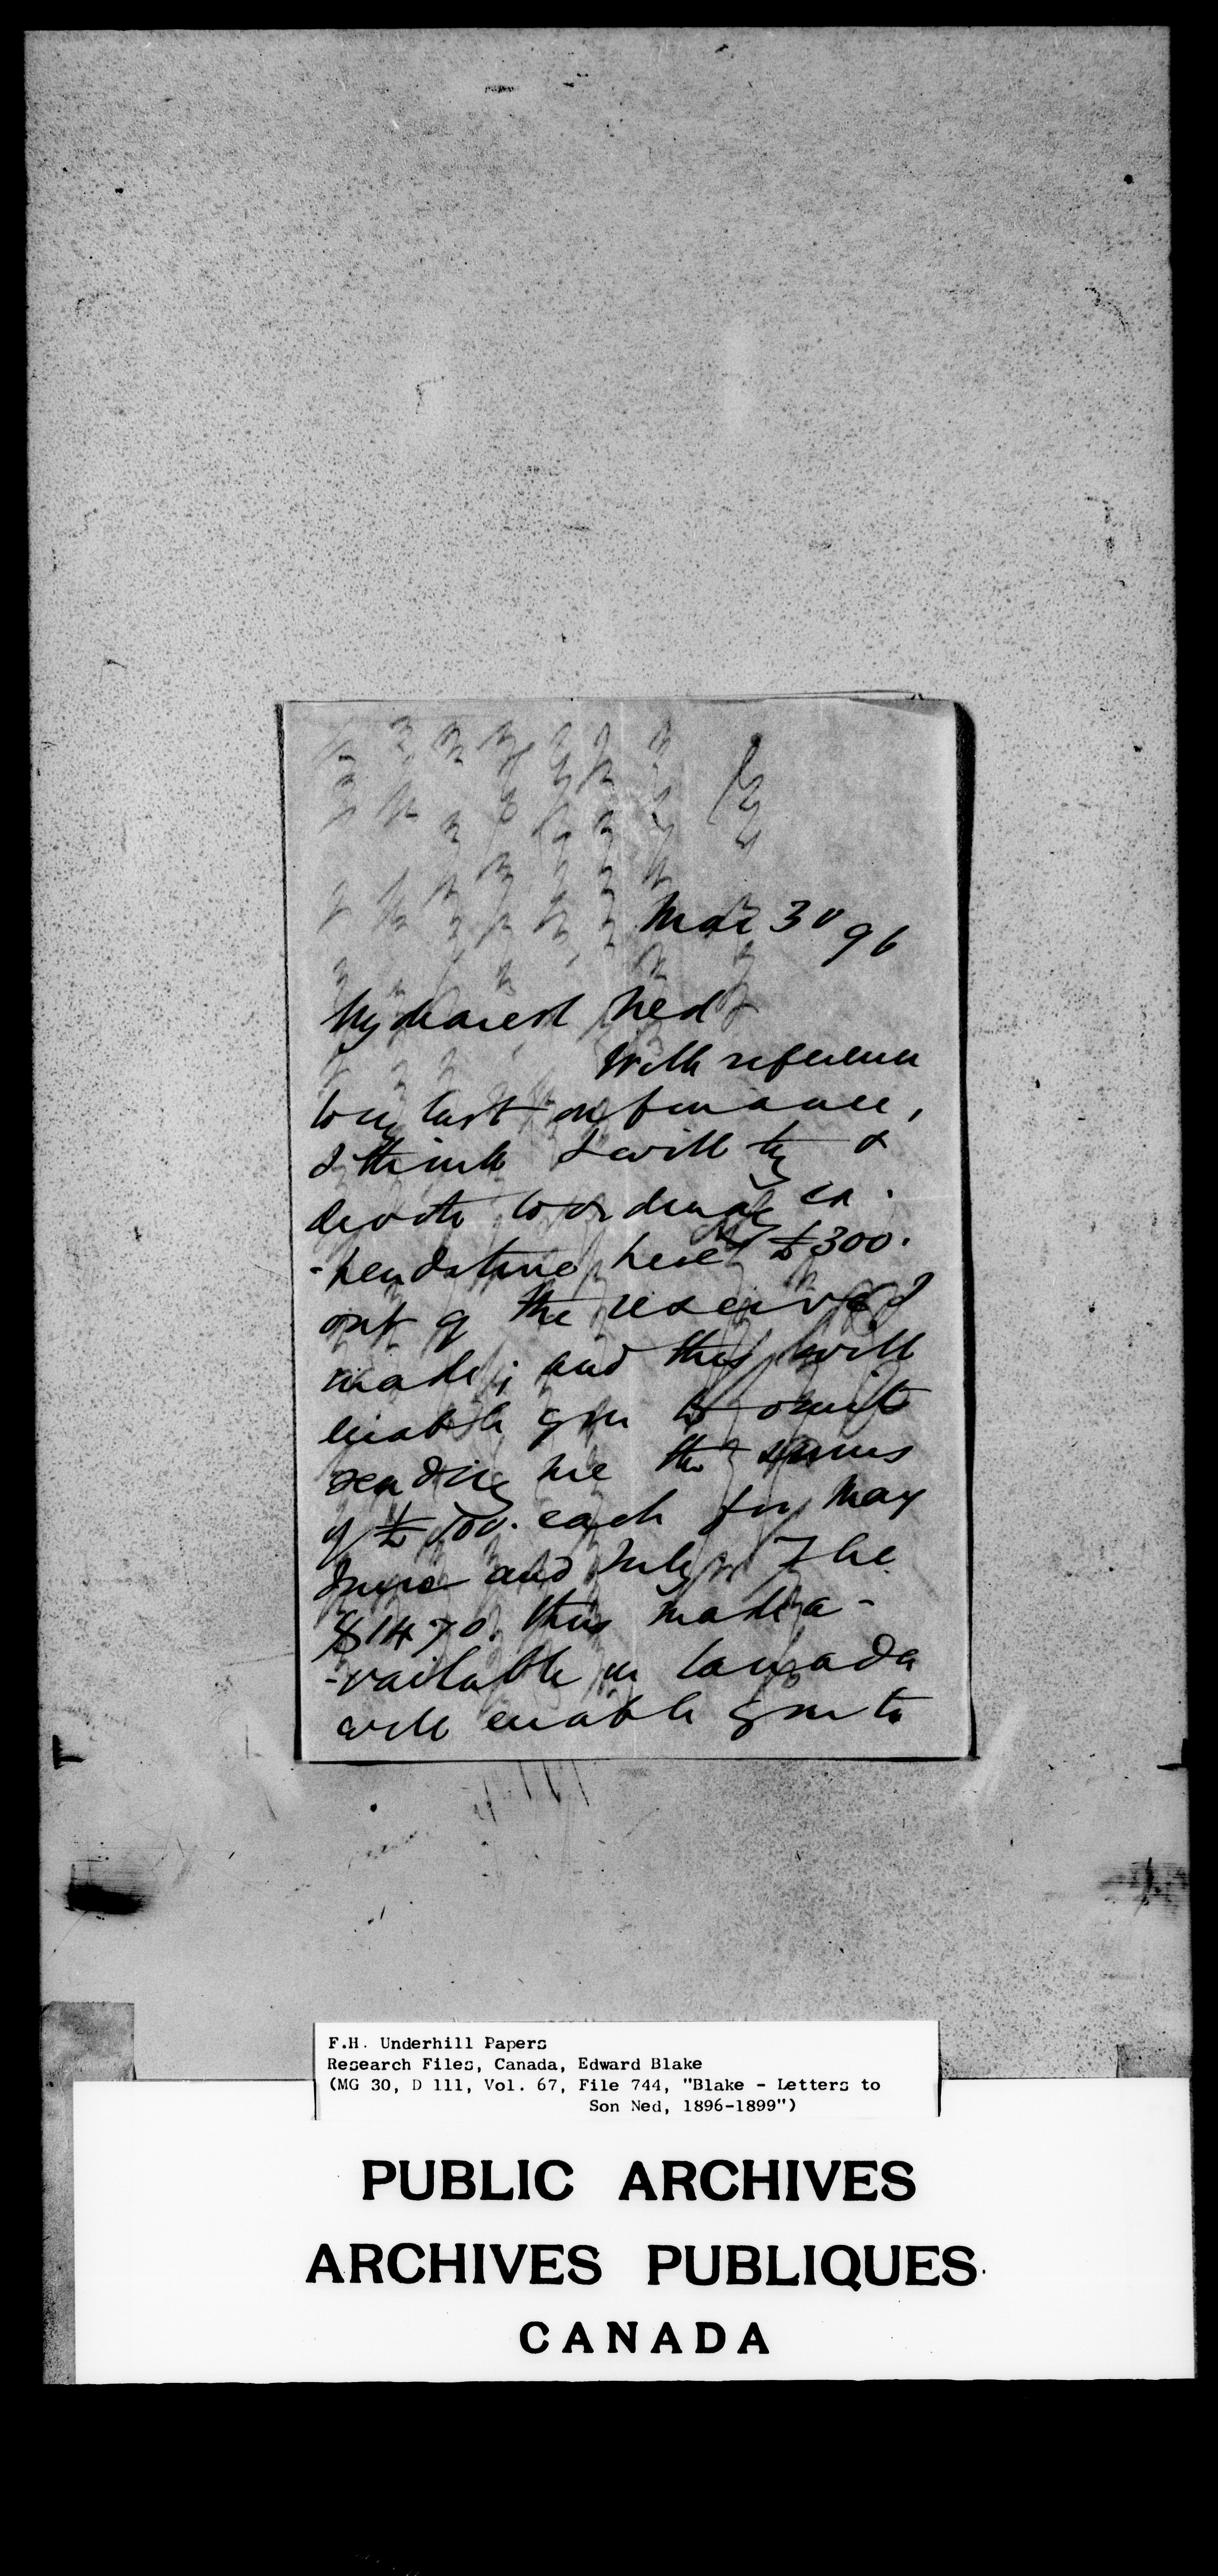 Mar 30 96
My dearest Ned
With reference
to my last on finance,
I think I will try &
devote to ordinary ex-
-penditure here £300.
out of the reserved
made; and this will
enable you to omit
sending me the sums
of £100. each for May
June and July. The
$1470. thus made a-
-vailable in Canada
will enable you to
F.H. Underhill Papers
Research Files, Canada, Edward Blake
(MG 30, D 111, Vol. 67, File 744, "Blake - Letters to
Son Ned, 1896-1899")
PUBLIC ARCHIVES
ARCHIVES PUBLIQUES
CANADA